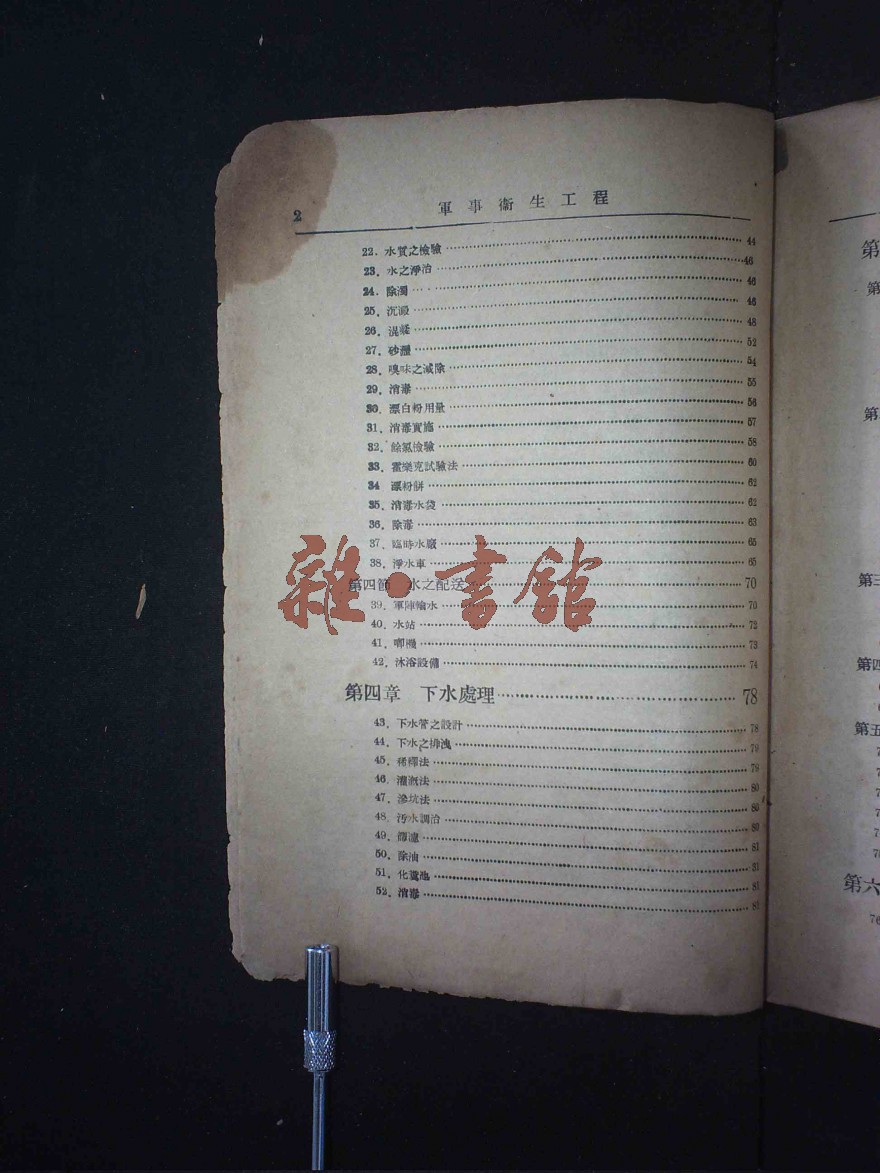 2 軍事衛生工程
22. 水質之檢驗 44
23. 水之淨治 46
24. 除濁 46
25. 沉澱 46
26. 混凝 48
27. 砂濾 52
28. 嗅味之減除 54
29. 消毒 55
30. 漂白粉用量 56
31. 消毒實施 57
32. 餘氯檢驗 58
33. 霍樂克試驗法 60
34 漂粉餅 62
35. 消毒水袋 62
36. 除毒 63
37. 臨時水廠 65
38. 淨水車 65
第四節 水之配送 70
39. 軍陣輸水 70
40. 水站 72
41. 唧機 73
42. 沐浴設備 74
第四章 下水處理 78
43. 下水管之設計 78
44. 下水之排洩 79
45. 稀釋法 79
46. 灌溉法 80
47. 滲坑法 80
48. 汚水調治 80
49. 篩濾 81
50. 除油 81
51. 化糞池 81
52. 消毒 81
雜·書館
第
第
第
第三
第四
第五
第六
76